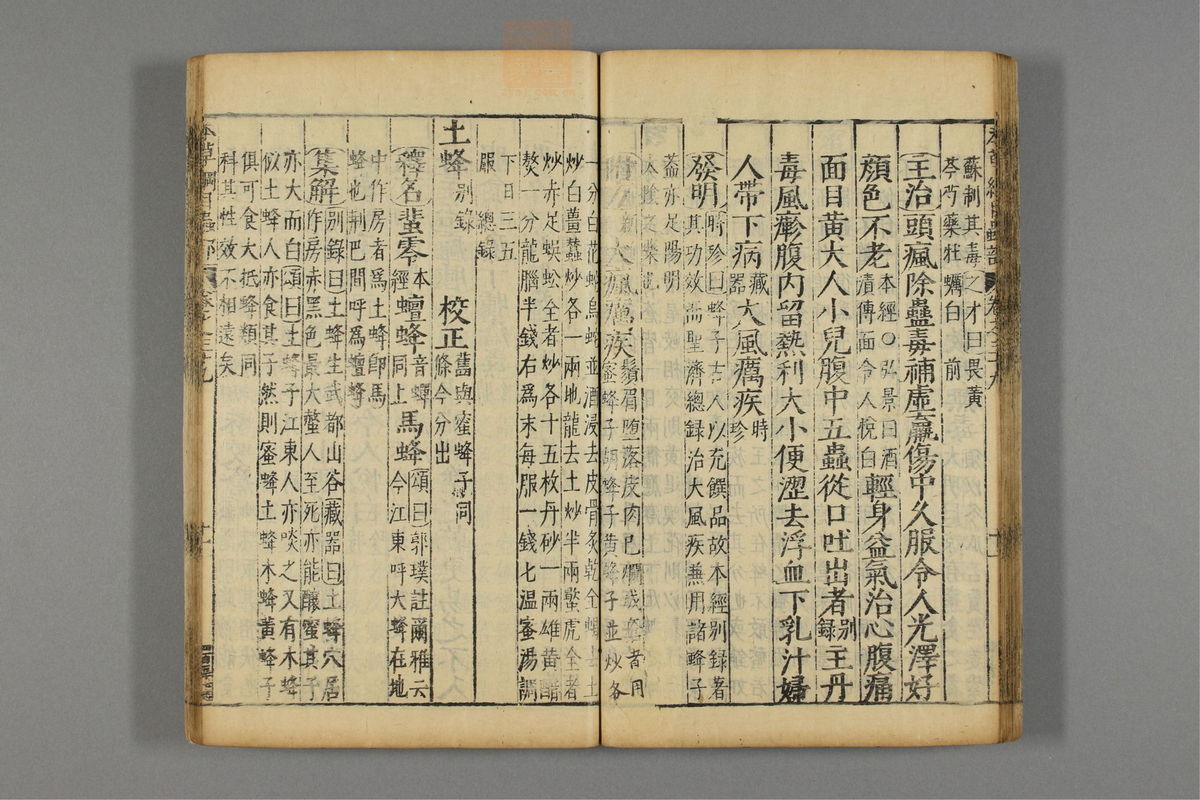 蘇制其毒之才曰畏黃
芩芍藥牡蠣白前
主治頭瘋除蠱毒補虛羸傷中久服令人光澤好
顏色不老本經○弘景曰酒漬傅面令人悅白輕身益氣治心腹痛
面目黃大人小兒腹中五蟲從口吐出者別録主丹
毒風瘮腹内留熱利大小便澀去浮血下乳汁婦
人帶下病藏器大風癘疾時珍
發明時珍曰蜂子古人以充饌品故本經別録著
其功效而聖濟總録治大風疾兼用諸蜂子
蓋亦足陽明
太陰之藥也
附方新一大風癘疾鬚眉墮落皮肉已爛成瘡者用
蜜蜂子胡蜂子黃蜂子並炒各
一分白花蛇烏蛇並酒浸去皮骨炙乾全蠍去土
炒白薑蠶炒各一兩地龍去土炒半兩蠍虎全者
炒赤足蜈蚣全者炒各十五枚丹砂一兩雄黃醋
熬一分龍腦半錢右爲末每服一錢七温蜜湯調
下日三五
服 總録
土蜂別録 校正舊與蜜蜂子同條今分出
釋名蜚零本經蟺蜂音蟬同上馬蜂頌曰郭璞註爾雅云
今江東呼大蜂在地
中作房者爲土蜂卽馬
蜂也荆巴間呼爲蟺蜂
集解別録曰土蜂生武都山谷藏器曰土蜂穴居
作房赤黑色最大螫人至死亦能釀蜜其子
亦大而白頌曰土蜂子江東人亦啖之又有木蜂
似土蜂人亦食其子然則蜜蜂土蜂木蜂黃蜂子
俱可食大抵蜂類同
科其性效不相遠矣
本草綱目蟲部 卷之三十九